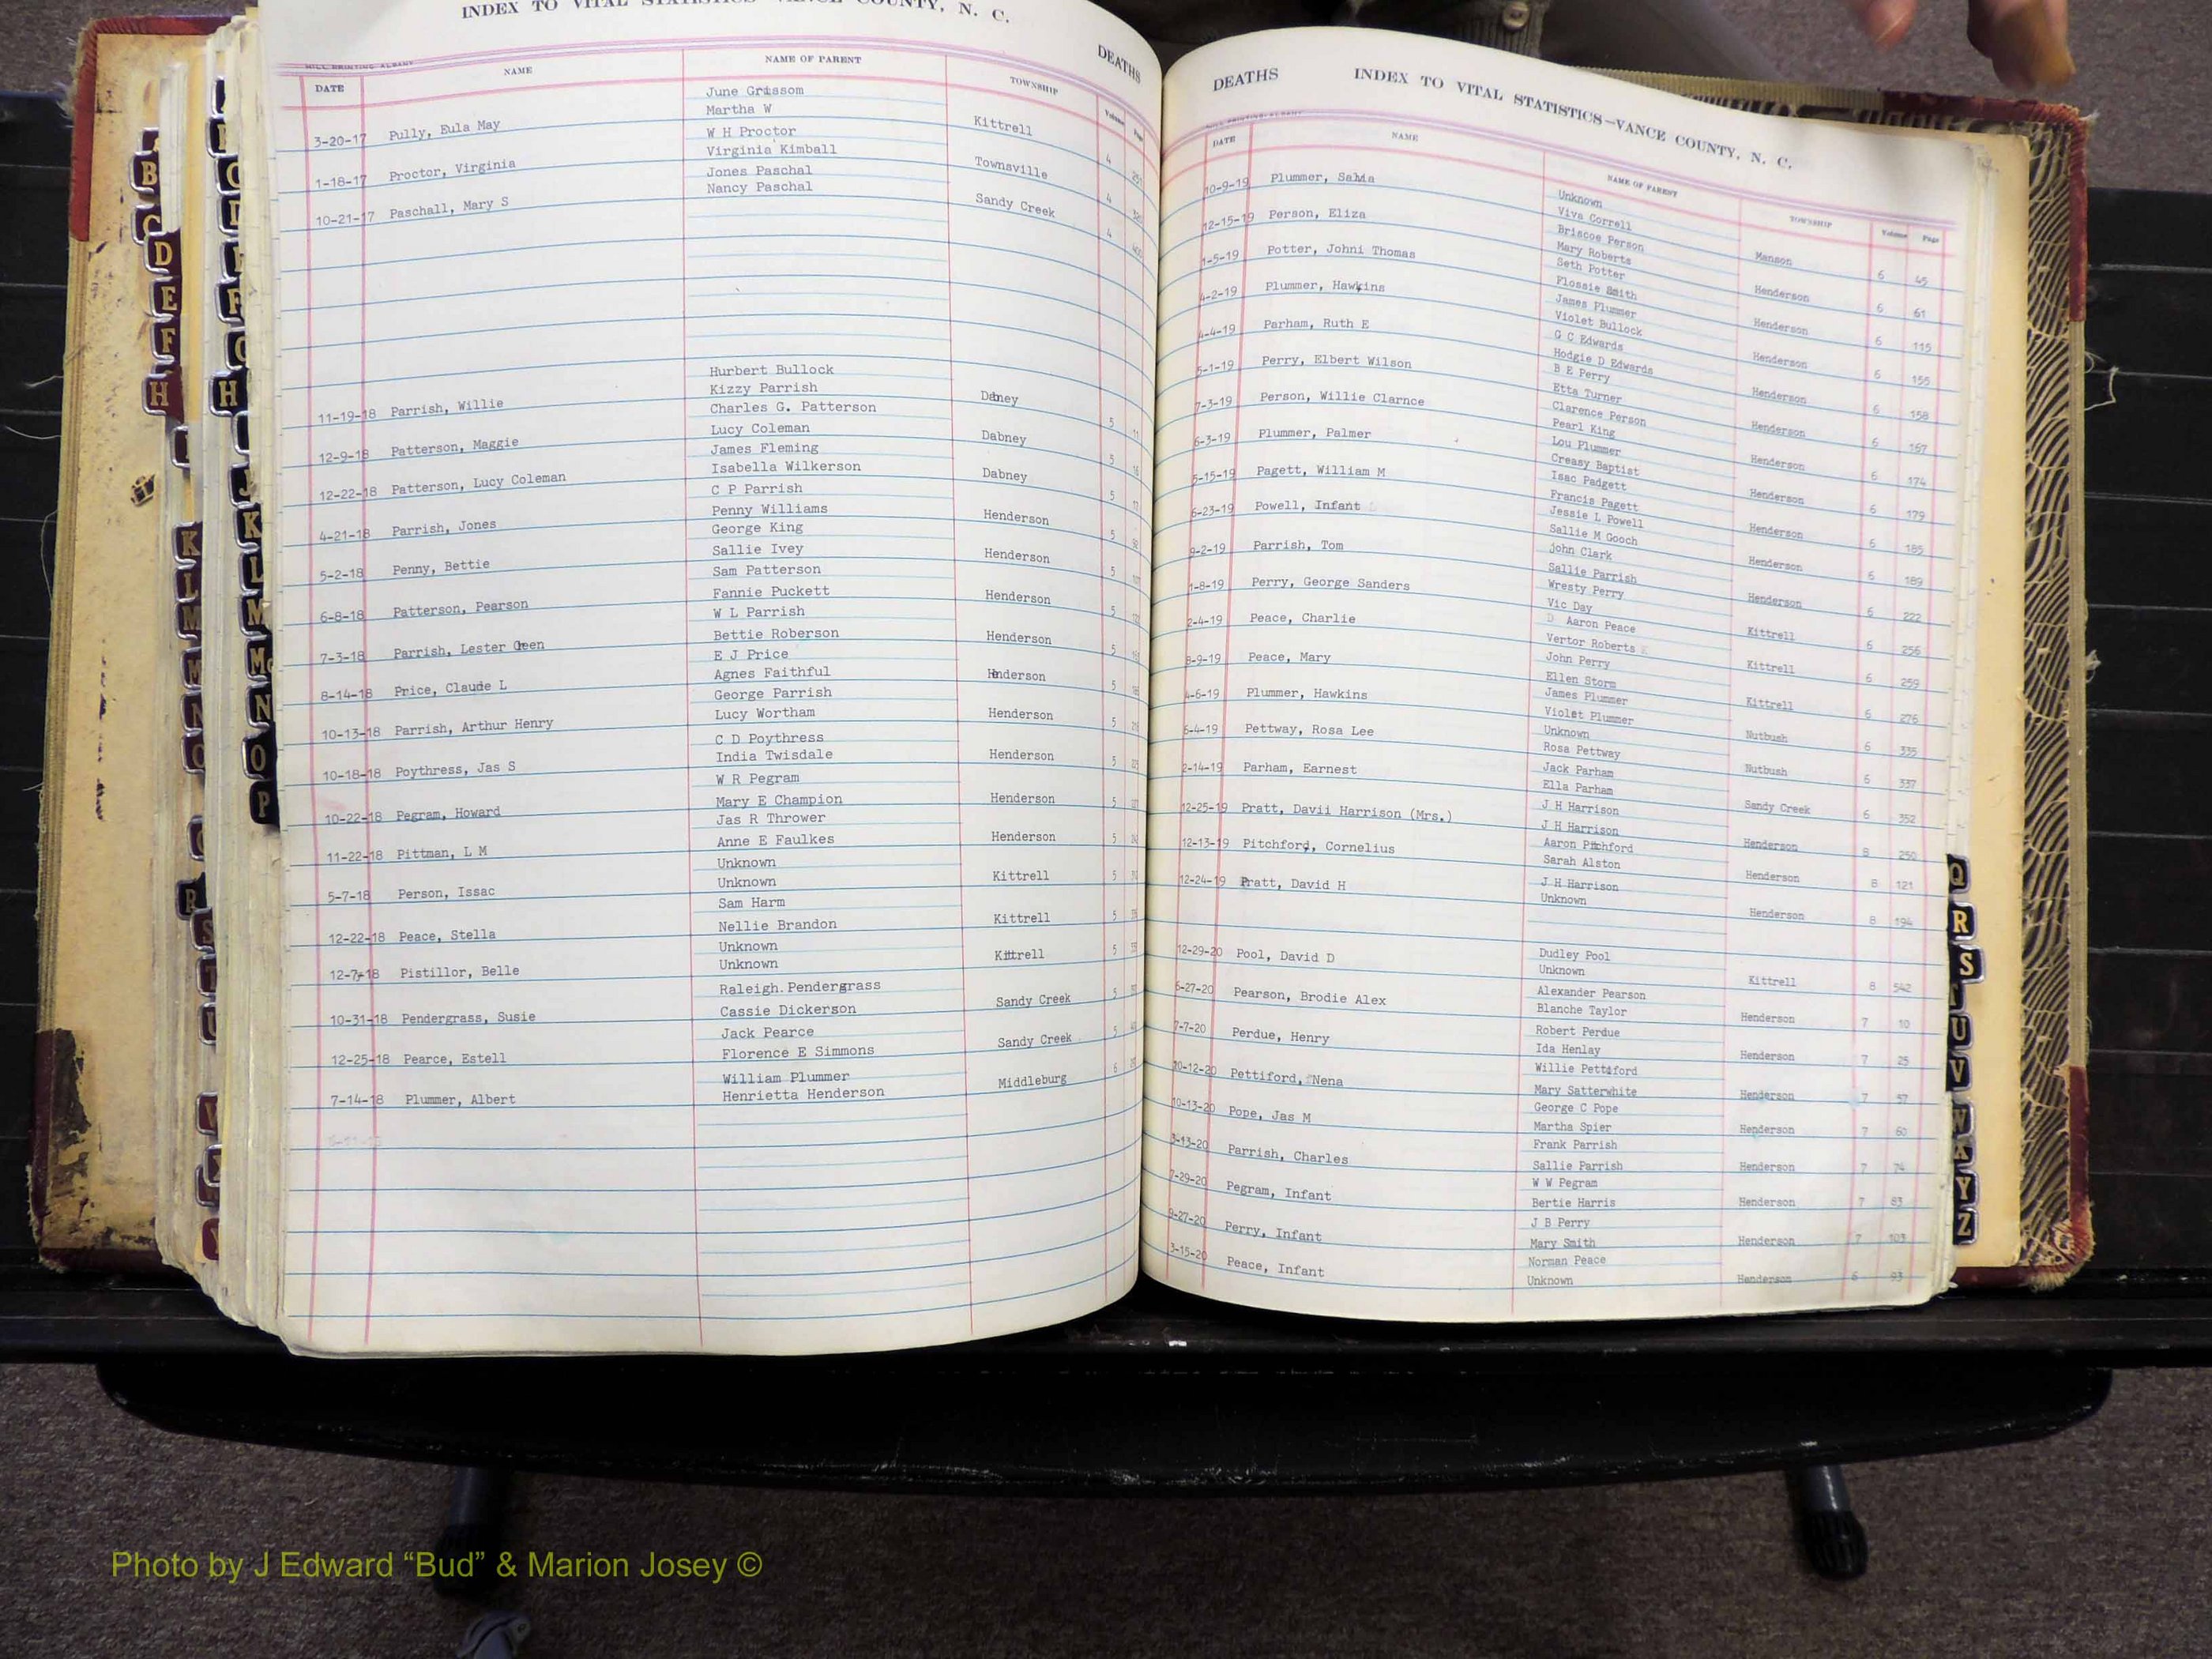 INDEX TO VITAL STATISTICS VANCE COUNTY, N. C.
DEATHS
DATE NAME NAME OF PARENT TOWNSHIP Volume Page
June Grissom
3-20-17 Pully, Eula May Martha W Kittrell 4
W H Proctor
1-18-17 Proctor, Virginia Virginia Kimball Townsville 4
Jones Paschal
10-21-17 Paschall, Mary S Nancy Paschal Sandy Creek 4
Hurbert Bullock
11-19-18 Parrish, Willie Kizzy Parrish Dabney 5
Charles G. Patterson
12-9-18 Patterson, Maggie Lucy Coleman Dabney 5
James Fleming
12-22-18 Patterson, Lucy Coleman Isabella Wilkerson Dabney 5
C P Parrish
4-21-18 Parrish, Jones Penny Williams Henderson 5
George King
5-2-18 Penny, Bettie Sallie Ivey Henderson 5
Sam Patterson
6-8-18 Patterson, Pearson Fannie Puckett Henderson 5
W L Parrish
7-3-18 Parrish, Lester Green Bettie Roberson Henderson 5
E J Price
8-14-18 Price, Claude L Agnes Faithful Henderson 5
George Parrish
10-13-18 Parrish, Arthur Henry Lucy Wortham Henderson 5
C D Poythress
10-18-18 Poythress, Jas S India Twisdale Henderson 5
W R Pegram
10-22-18 Pegram, Howard Mary E Champion Henderson 5
Jas R Thrower
11-22-18 Pittman, L M Anne E Faulkes Henderson 5
Unknown
5-7-18 Person, Issac Unknown Kittrell 5
Sam Harm
12-22-18 Peace, Stella Nellie Brandon Kittrell 5
Unknown
12-7-18 Pistillor, Belle Unknown Kittrell 5
Raleigh Pendergrass
10-31-18 Pendergrass, Susie Cassie Dickerson Sandy Creek 5
Jack Pearce
12-25-18 Pearce, Estell Florence E Simmons Sandy Creek 5
William Plummer
7-14-18 Plummer, Albert Henrietta Henderson Middleburg 6
DEATHS INDEX TO VITAL STATISTICS—VANCE COUNTY, N. C.
DATE NAME NAME OF PARENT TOWNSHIP Volume Page
Unknown
10-9-19 Plummer, Viva Correll Manson 6 45
Briscoe Person
12-15-19 Person, Eliza Mary Roberts Henderson 6 61
Seth Potter
1-5-19 Potter, Johni Thomas Flossie Smith Henderson 6 115
James Plummer
4-2-19 Plummer, Hawkins Violet Bullock Henderson 6 155
G C Edwards
4-4-19 Parham, Ruth E Hodgie D Edwards Henderson 6 158
B E Perry
5-1-19 Perry, Elbert Wilson Etta Turner Henderson 6 167
Clarence Person
7-3-19 Person, Willie Clarnce Pearl King Henderson 6 174
Lou Plummer
6-3-19 Plummer, Palmer Creasy Baptist Henderson 6 179
Isac Padgett
6-15-19 Pagett, William M Francis Pagett Henderson 6 185
Jessie L Powell
6-23-19 Powell, Infant Sallie M Gooch Henderson 6 189
john Clark
9-2-19 Parrish, Tom Sallie Parrish Henderson 6 222
Wresty Perry
1-8-19 Perry, George Sanders Vic Day Kittrell 6 256
Aaron Peace
2-4-19 Peace, Charlie Vertor Roberts Kittrell 6 259
John Perry
8-9-19 Peace, Mary Ellen Storm Kittrell 6 276
James Plummer
4-6-19 Plummer, Hawkins Violet Plummer Nutbush 6 335
Unknown
6-4-19 Pettway, Rosa Lee Rosa Pettway Nutbush 6 337
Jack Parham
2-14-19 Parham, Earnest Ella Parham Sandy Creek 6 352
J H Harrison
12-25-19 Pratt, Davii Harrison (Mrs.) J H Harrison Henderson 8 250
Aaron Pitchford
12-13-19 Pitchford, Cornelius Sarah Alston Henderson 8 121
J H Harrison
12-24-19 Pratt, David H Unknown Henderson 8 194
Dudley Pool
12-29-20 Pool, David D Unknown Kittrell 8 542
Alexander Pearson
6-27-20 Pearson, Brodie Alex Blanche Taylor Henderson 7 10
Robert Perdue
7-7-20 Perdue, Henry Ida Henlay Henderson 7 25
Willie Pettiford
10-12-20 Pettiford, Nena Mary Satterwhite Henderson 7 57
George C Pope
10-13-20 Pope, Jas M Martha Spier Henderson 7 60
Frank Parrish
3-13-20 Parrish, Charles Sallie Parrish Henderson 7 74
W W Pegram
7-29-20 Pegram, Infant Bertie Harris Henderson 7 83
J B Perry
9-27-20 Perry, Infant Mary Smith Henderson 7 103
Norman Peace
3-15-20 Peace, Infant Unknown Henderson 6 93
B
C
D
E
F
H
K
L
M
N
O
P
Q
R
S
U
V
Y
Z
Photo by J Edward “Bud” & Marion Josey ©